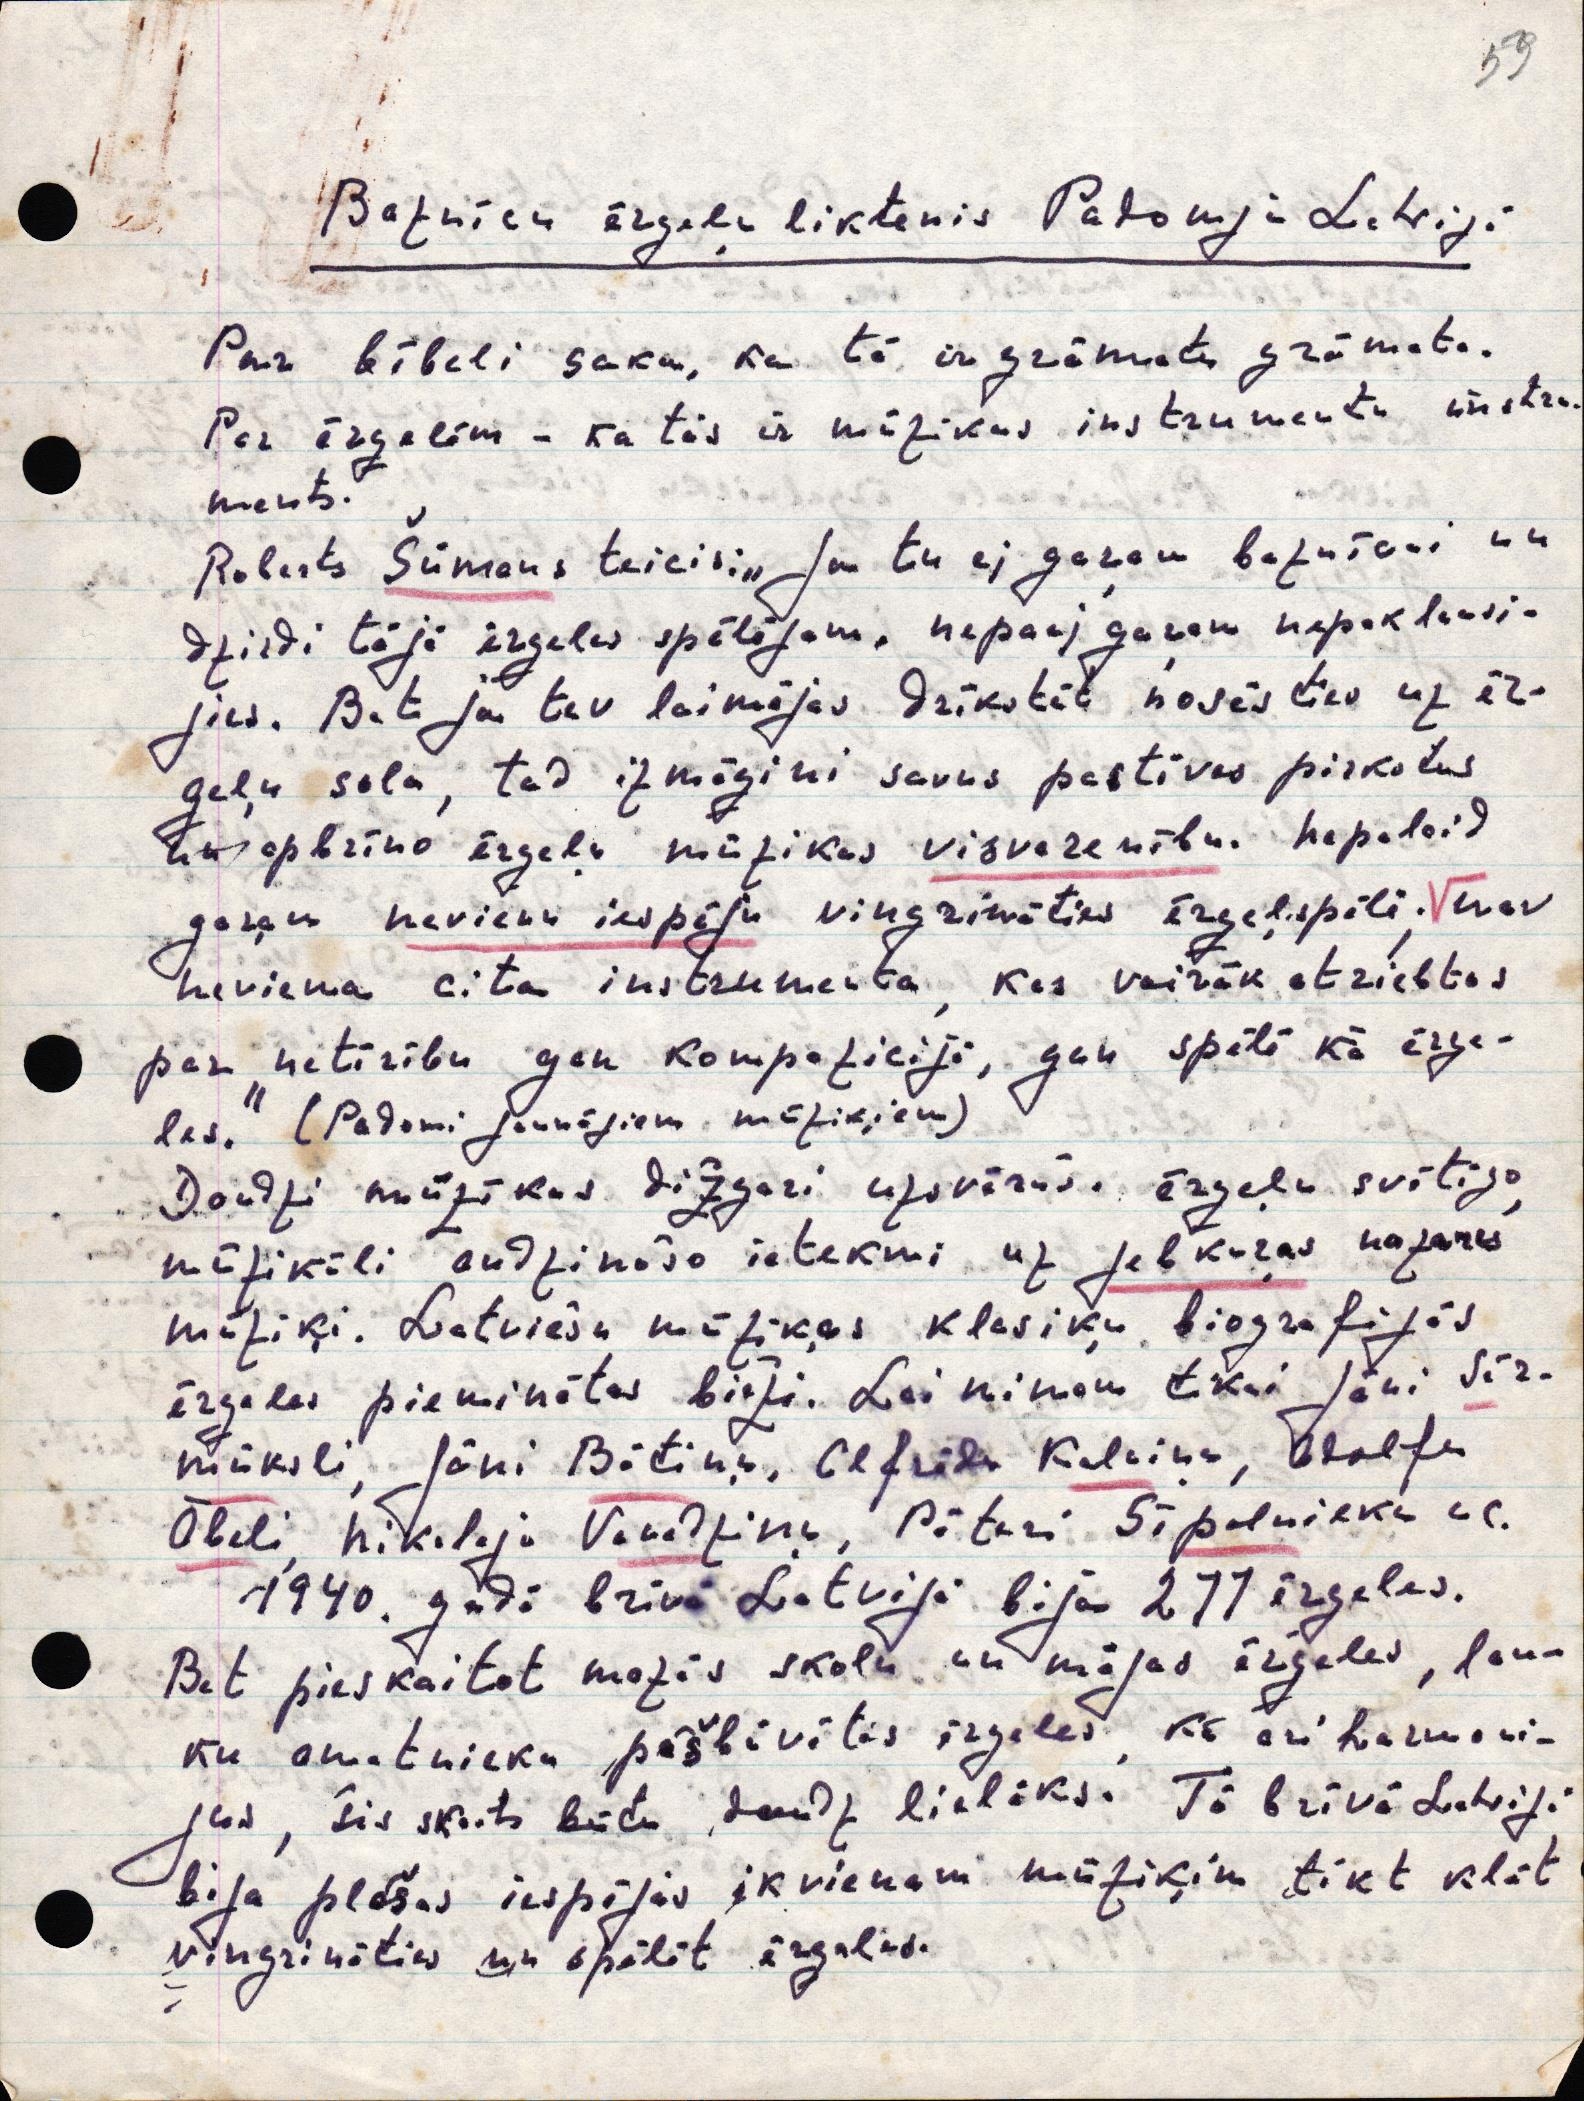 59
Baznīcu ērģeļu liktenis Padomju Latvijā
Par bībeli saka, ka tā ir grāmatu grāmata.
Par ērģelēm - ka tās ir mūzikas instrumentu instru-
ments.
Roberts Šūmans teicis: „Ja tu ej gaŗam baznīcai un
dzirdi tajā ērģeles spēlējam, nepaej gaŗam nepaklausī-
jies. Bet ja tev laimējas drīkstēt nosēsties uz ēr-
ģeļu sola, tad izmēģini savus pastīvos pirkstus
un apbrīno ērģeļu mūzikas visvarenību. Nepalaid
gaŗam nevienu iespēju vingrināties ērģeļspēlē; nav
neviena cita instrumenta, kas vairāk atriebtos
par netīrību gan kompozīcijā, gan spēlē kā ērģe-
les." (Padomi jaunajiem mūziķiem)
Daudzi mūzikas dižgari uzsvēruši ērģeļu svētīgo,
mūzikāli audzinošo ietekmi uz jebkuŗas nozares
mūziķi. Latviešu mūzikas klasiķu biografijās
ērģeles pieminētas bieži. Lai minam tikai Jāni Sēr-
mūksli, Jāni Bētiņu, Alfrēdu Kalniņu, Ādolfu
Ābeli, Nikolaju Vanadziņu, Pēteri Sīpolnieku uc.
1940. gadā brīvā Latvijā bija 277 ērģeles.
Bet pieskaitot mazās skolu un mājas ērģeles, lau-
ku amatnieku pašbūvētās ērģeles, kā arī harmoni-
jus, šis skaits būtu daudz lielāks. Tā brīvā Latvijā
bija plašas iespējas ikvienam mūziķim tikt klāt
vingrināties un spēlēt ērģeles.